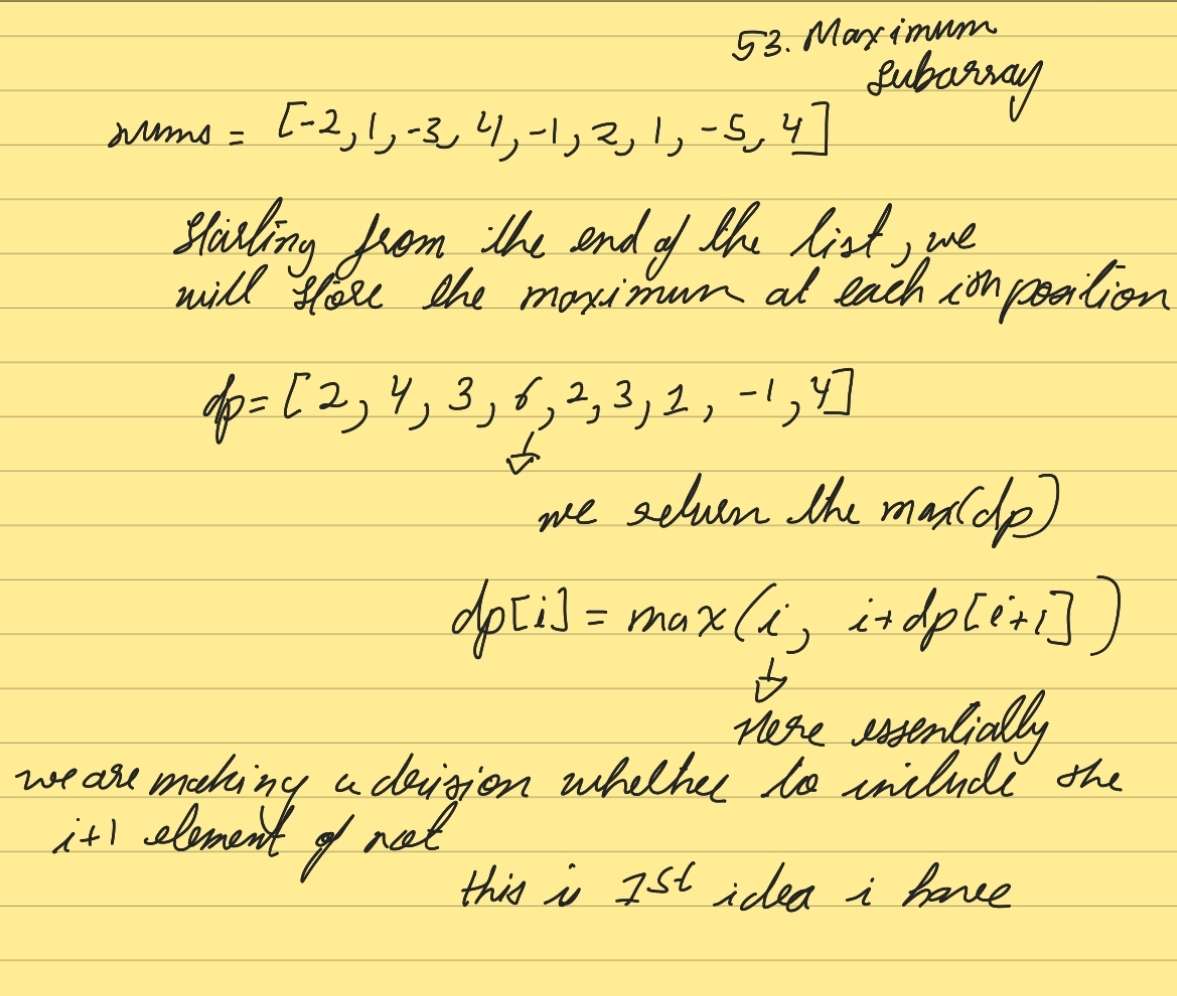 53. Maximum
subarray
nums = [-2, 1, -3, 4, -1, 2, 1, -5, 4]
Starting from the end of the list, we
will store the maximum at each ith position
dp = [2, 4, 3, 6, 2, 3, 1, -1, 4]
we return the max(dp)
dp[i] = max(i, i+dp[i+1])
Here essentially
we are making a decision whether to include the
i+1 element of not
this is 1st idea i have